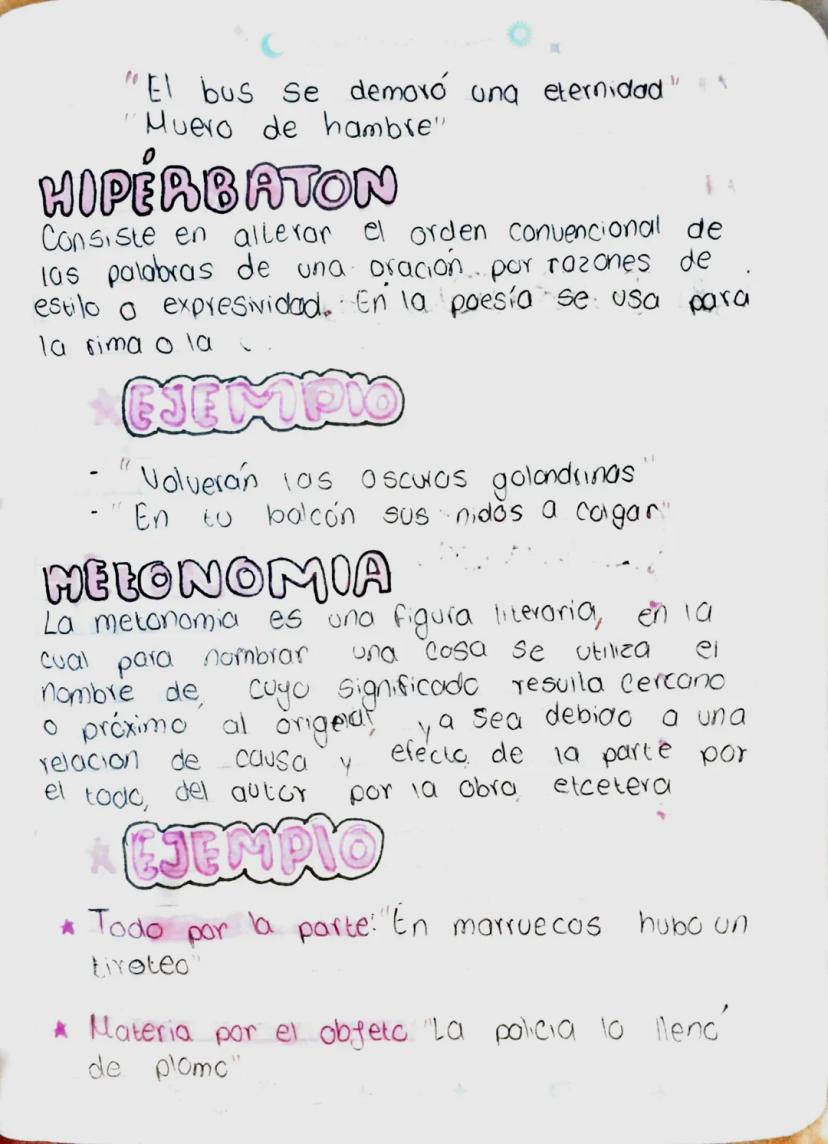 "El bus se demoró una eternidad"
"Muero de hambre"
HIPÉRBATON
Consiste en alterar el orden convencional de
las palabras de una oración por razones de
estilo o expresividad. En la poesía se usa para
la rima o la
EJEMPlO
- "Volverán las oscuras golondrinas"
- "En tu balcón sus nidos a colgar"
METONOMIA
La metonomia es una figura literaria, en la
cual para nombrar una cosa se utiliza el
nombre de, cuyo significado resulta cercano
o próximo al original, ya sea debido a una
relacion de causa y efecto, de la parte por
el todo, del autor por la obra, etcetera
EJEMPlO
★ Todo por la parte: "En marruecos hubo un
tiroteo"
★ Materia por el objeto "La policia lo llenó
de plomo"